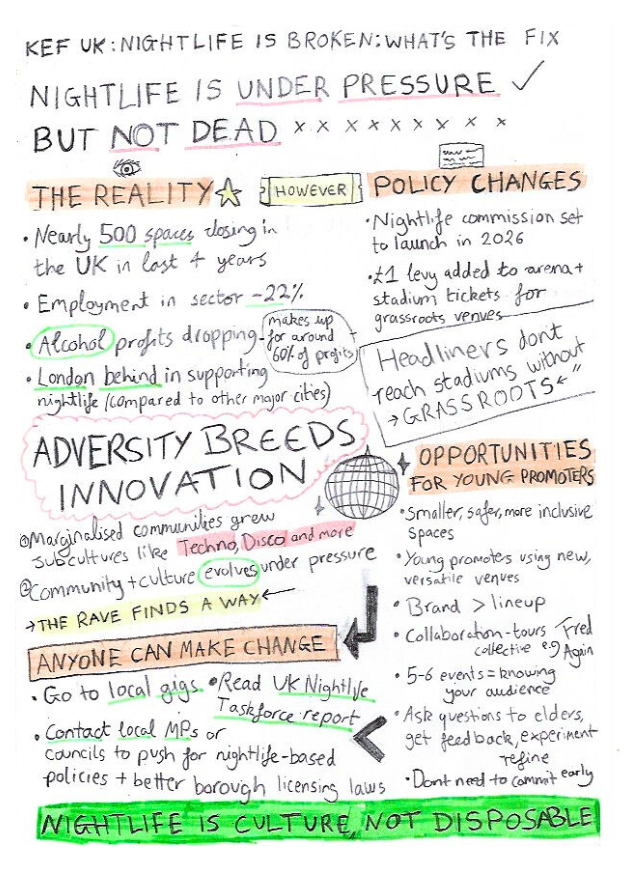 KEF UK: NIGHTLIFE IS BROKEN: WHAT'S THE FIX
NIGHTLIFE IS UNDER PRESSURE ✓
BUT NOT DEAD x x x x x x x x x
THE REALITY
• Nearly 500 spaces closing in
the UK in last 4 years
• Employment in sector -22%
• Alcohol profits dropping -
makes up
for around
60% of profits
• London behind in supporting
nightlife (compared to other major cities)
HOWEVER
POLICY CHANGES
• Nightlife commission set
to launch in 2026
• £1 levy added to arena +
stadium tickets for
grassroots venues
Headliners dont
reach stadiums without
→ GRASSROOTS ← "
ADVERSITY BREEDS
INNOVATION
Marginalised communities grew
subcultures like Techno, Disco and more
Community + culture evolves under pressure
→ THE RAVE FINDS A WAY ←
ANYONE CAN MAKE CHANGE
• Go to local gigs • Read UK Nightlife
Taskforce report
• Contact local MPs or
councils to push for nightlife-based
policies + better borough licensing laws
OPPORTUNITIES
FOR YOUNG PROMOTERS
• Smaller, safer, more inclusive
spaces
• Young promoters using new,
versatile venues
• Brand > lineup
• Collaboration - tours
collective e.g Fred
Again
• 5-6 events = knowing
your audience
• Ask questions to elders,
get feedback, experiment
refine
• Dont need to commit early
NIGHTLIFE IS CULTURE, NOT DISPOSABLE